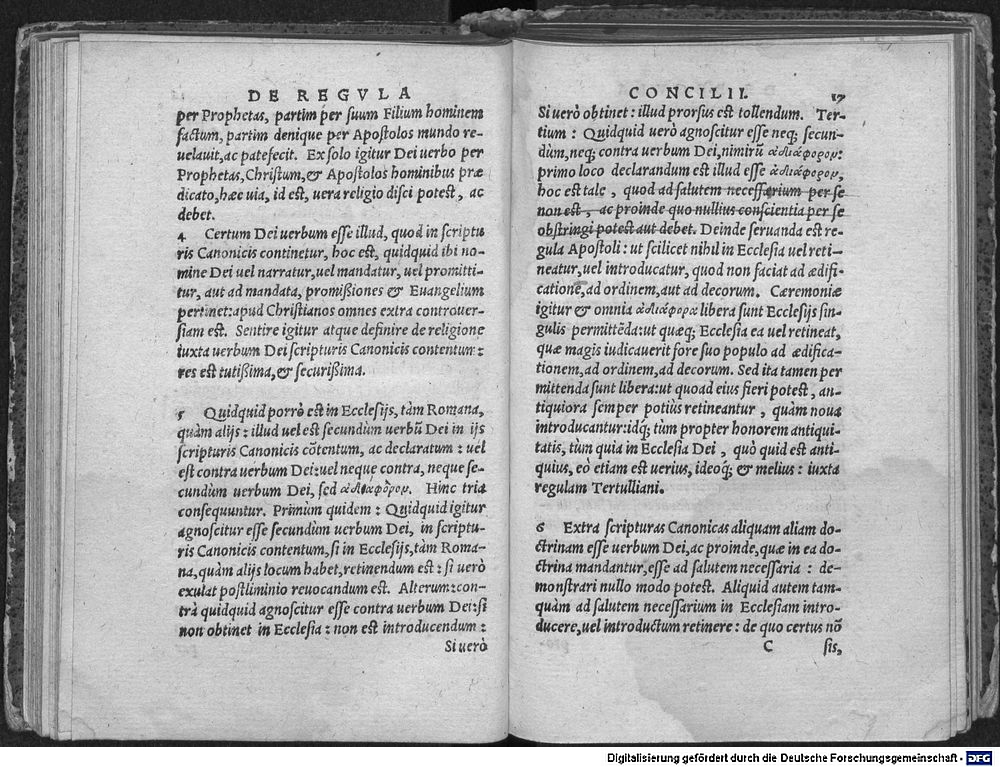 DE REGVLA
per Prophetas, partim per suum Filium hominem
factum, partim denique per Apostolos mundo re-
uelauit, ac patefecit. Ex solo igitur Dei uerbo per
Prophetas, Christum, & Apostolos hominibus præ
dicato, hæc uia, id est, uera religio disci potest, ac
debet.
4 Certum Dei uerbum esse illud, quod in scriptu
ris Canonicis continetur, hoc est, quidquid ibi no-
mine Dei uel narratur, uel mandatur, uel promitti-
tur, aut ad mandata, promißiones & Euangelium
pertinet: apud Christianos omnes extra controuer-
siam est. Sentire igitur atque definire de religione
iuxta uerbum Dei scripturis Canonicis contentum:
res est tutißima, & securißima.
5 Quidquid porrò est in Ecclesijs, tàm Romana,
quàm alijs: illud uel est secundùm uerbũ Dei in ijs
scripturis Canonicis cõtentum, ac declaratum: uel
est contra uerbum Dei: uel neque contra, neque se-
cundùm uerbum Dei, sed ἀδιάφορον. Hinc tria
consequuntur. Primùm quidem: Quidquid igitur
agnoscitur esse secundùm uerbum Dei, in scriptu-
ris Canonicis contentum, si in Ecclesijs, tàm Roma-
na, quàm alijs locum habet, retinendum est: si uerò
exulat postliminio reuocandum est. Alterum: con-
trà quidquid agnoscitur esse contra uerbum Dei: si
non obtinet in Ecclesia: non est introducendum:
Si uerò
CONCILII.
17
Si uerò obtinet: illud prorsus est tollendum. Ter-
tium: Quidquid uerò agnoscitur esse neq; secun-
dùm, neq; contra uerbum Dei, nimirũ ἀδιάφορον:
primo loco declarandum est illud esse ἀδιάφορον,
hoc est tale, quod ad salutem necessarium per se
non est, ac proinde quo nullius conscientia per se
obstringi potest aut debet. Deinde seruanda est re-
gula Apostoli: ut scilicet nihil in Ecclesia uel reti-
neatur, uel introducatur, quod non faciat ad ædifi-
catione, ad ordinem, aut ad decorum. Cæremoniæ
igitur & omnia ἀδιάφορα libera sunt Ecclesijs sin-
gulis permittẽda: ut quæq; Ecclesia ea uel retineat,
quæ magis iudicauerit fore suo populo ad ædifica-
tionem, ad ordinem, ad decorum. Sed ita tamen per
mittenda sunt libera: ut quoad eius fieri potest, an-
tiquiora semper potiùs retineantur, quàm noua
introducantur: idq; tùm propter honorem antiqui-
tatis, tùm quia in Ecclesia Dei, quò quid est anti-
quius, eò etiam est uerius, ideoq; & melius: iuxta
regulam Tertulliani.
6 Extra scripturas Canonicas aliquam aliam do-
ctrinam esse uerbum Dei, ac proinde, quæ in ea do-
ctrina mandantur, esse ad salutem necessaria: de-
monstrari nullo modo potest. Aliquid autem tam-
quàm ad salutem necessarium in Ecclesiam intro-
ducere, uel introductum retinere: de quo certus nõ
C sis,
Digitalisierung gefördert durch die Deutsche Forschungsgemeinschaft - DFG